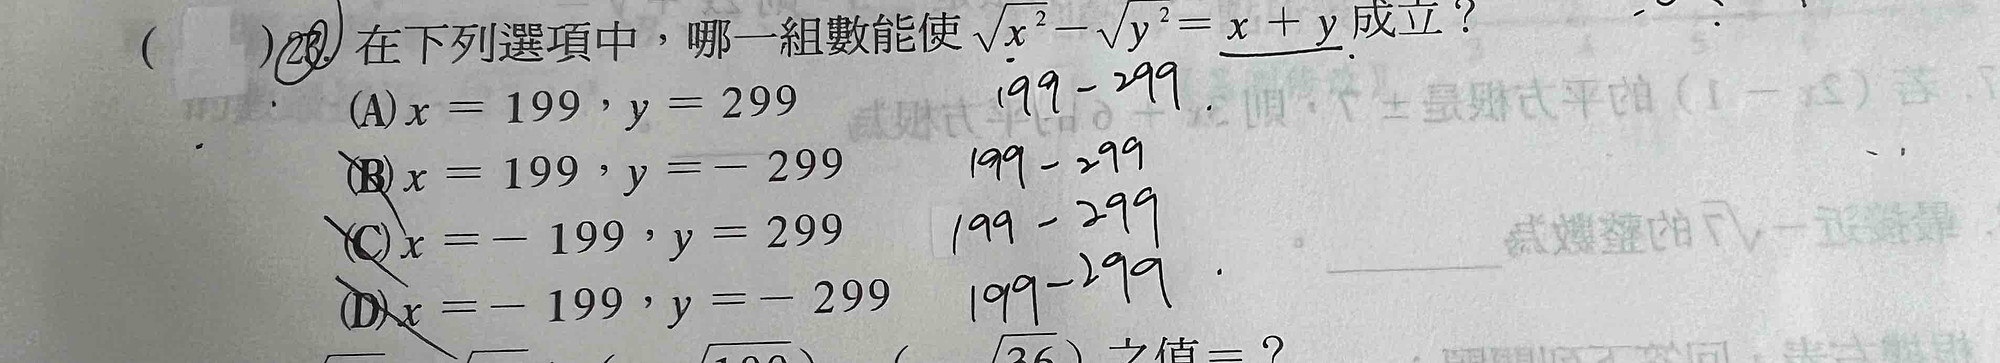 ( )23. 在下列選項中，哪一組數能使 √x² − √y² = x + y 成立？
(A) x = 199，y = 299 199 - 299
(B) x = 199，y = − 299 199 - 299
(C) x = − 199，y = 299 199 - 299
(D) x = − 199，y = − 299 199 - 299
√36 ) 之值 = ？